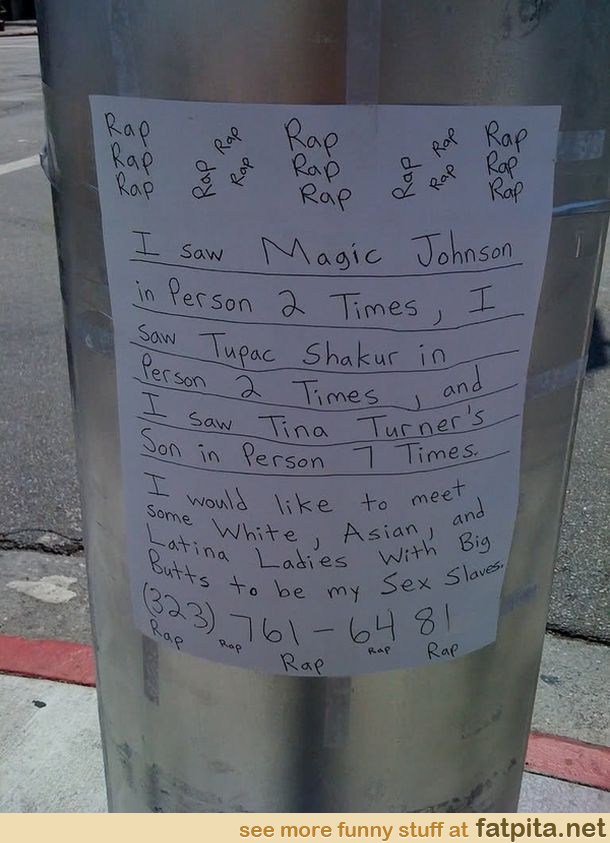 Rap Rap Rap Rap Rap
Rap Rap Rap Rap Rap Rap Rap
Rap Rap Rap
I saw Magic Johnson
in Person 2 Times, I
saw Tupac Shakur in
Person 2 Times, and
I saw Tina Turner's
Son in Person 7 Times.
I would like to meet
some White, Asian, and
Latina Ladies With Big
Butts to be my Sex Slaves.
(323) 761-6481
Rap Rap Rap Rap Rap
see more funny stuff at fatpita.net